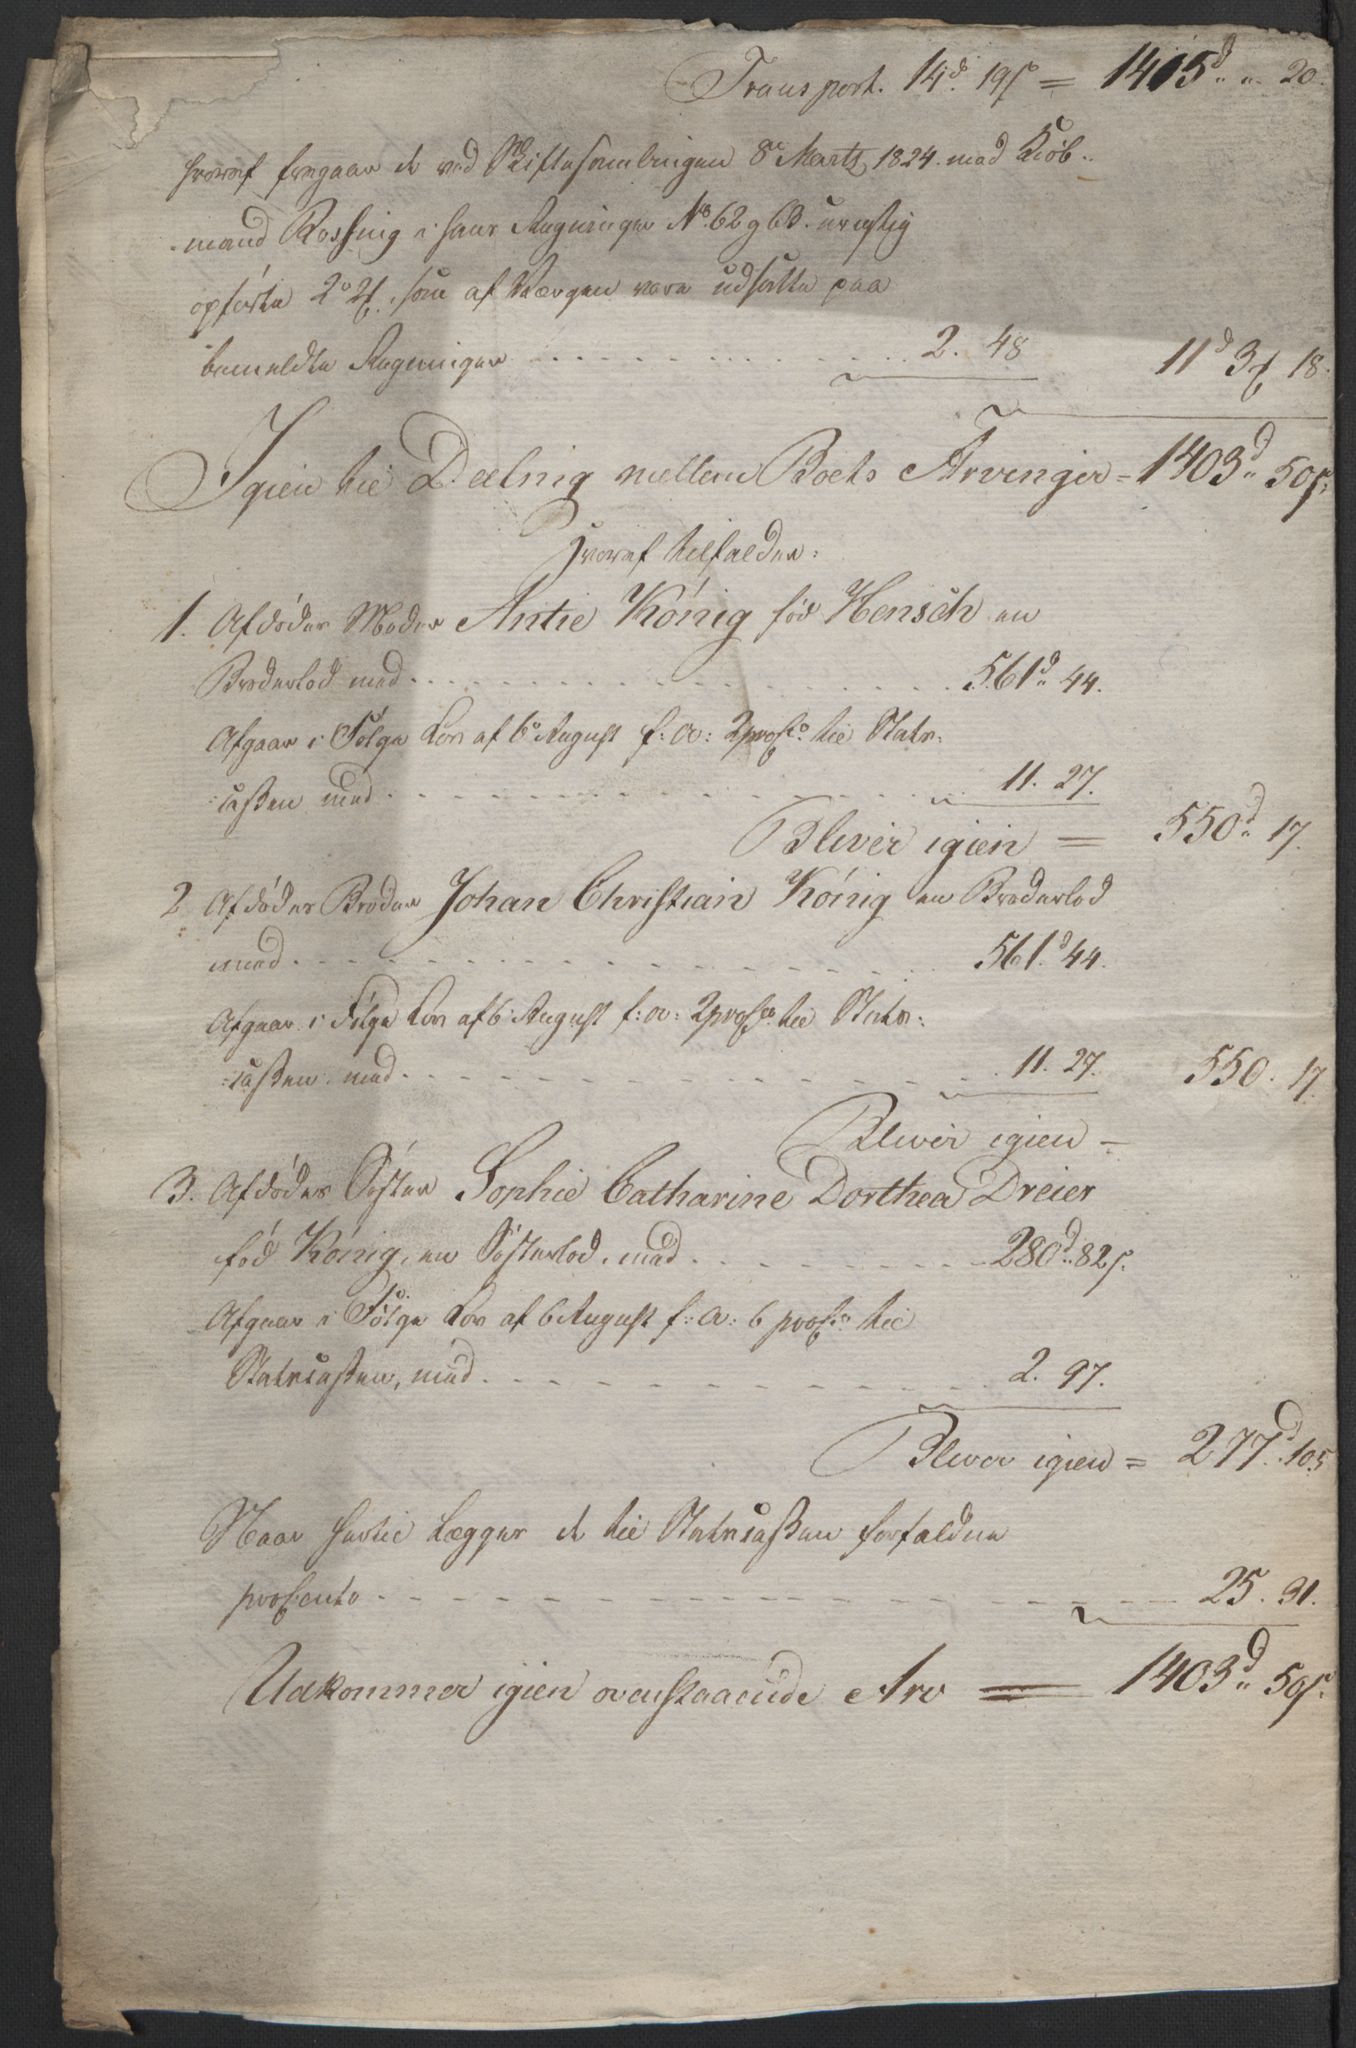 Transport. 14d. 19s = 1415d „ 20.
hvoraf fragaar de ved Skiftesamlingen 8de Martz 1824. med Kiöb-
mand Rossing i hans Regninger No. 62 og 63. urigtig
opförte 2d 2f. som af Værgen vare udsatte paa
bemeldte Regninger 2. 48 11d 3f 18.
Igien til Deeling mellem Boets Arvinger = 1403d „ 50s.
hvoraf tilfalder:
1. Afdödes Moder Antie König föd Hensch en
Broderlod med 561d „ 44.
Afgaar i Fölge Lov af 6 August f: A: 2 prosto. til Stats-
-cassen med 11. 27.
Bliver igien = 550d „ 17.
2 Afdödes Broder Johan Christian König en Broderlod
med 561d. 44.
Afgaar i Fölge Lov af 6 August f: a: 2 prosto. til Stats-
-cassen med 11. 27. 550. 17.
Bliver igien -
3. Afdödes Söster Sophie Catharine Dorthea Dreier
föd König, en Sösterlod, med 280d „ 82s.
Afgaar i Fölge Lov af 6 August f: A: 6 prosto. til
Statscassen, med 2. 97.
Bliver igien = 277d „ 105
Naar hertil lægges de til Statscassen forfaldne
procento 25. 31.
Udkommer igien ovenstaaende Arv = 1403d „ 50s.